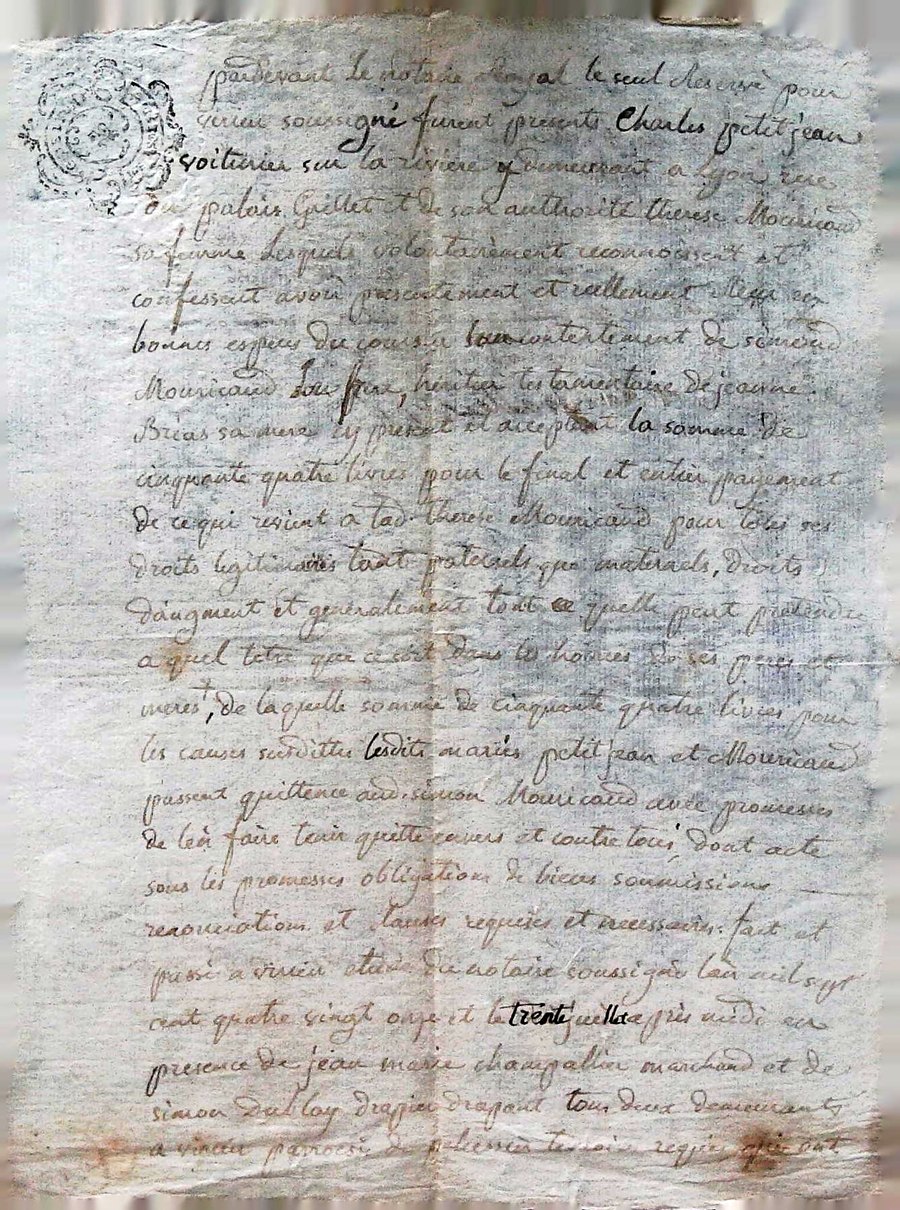 pardevant le notaire Royal le seul Reservé pour
virieu soussigné furent presents Charles petitjean
voiturier sur la riviere y demeurant a Lyon rue
du palais Grillet et de son authorité therese Mouricaud
sa femme lesquels volontairement reconnoissent et
confessent avoir presentement et reellement Reçu en
bonnes especes du cours a leur contentement de simond
Mouricaud son frere, heritier testamentaire de jeanne
Brias sa mere icy present et acceptant la somme de
cinquante quatre livres pour le final et entier payement
de ce qui revient a lad. therese Mouricaud pour tous ses
droits legitimaires tant paternels que maternels, droits
d'augment et generalement tout ce quelle peut pretendre
a quel titre que ce soit dans les hoiries de ses peres et
meres, de laquelle somme de cinquante quatre livres pour
les causes susdittes lesdits mariés petitjean et Mouricaud
passent quittence aud. simon Mouricaud avec promesses
de len faire tenir quitte envers et contre tous, dont acte
sous les promesses obligations de biens soumissions
renonciations et clauses requises et necessaires. fait et
passé a virieu etude du notaire soussigné lan mil sept
cent quatre vingt onze et le trente juillet apres midi en
presence de jean marie champallier marchand et de
simon Dublay drapier drapant tous deux demeurants
a virieu parroisse de pelussin temoins requis qui ont